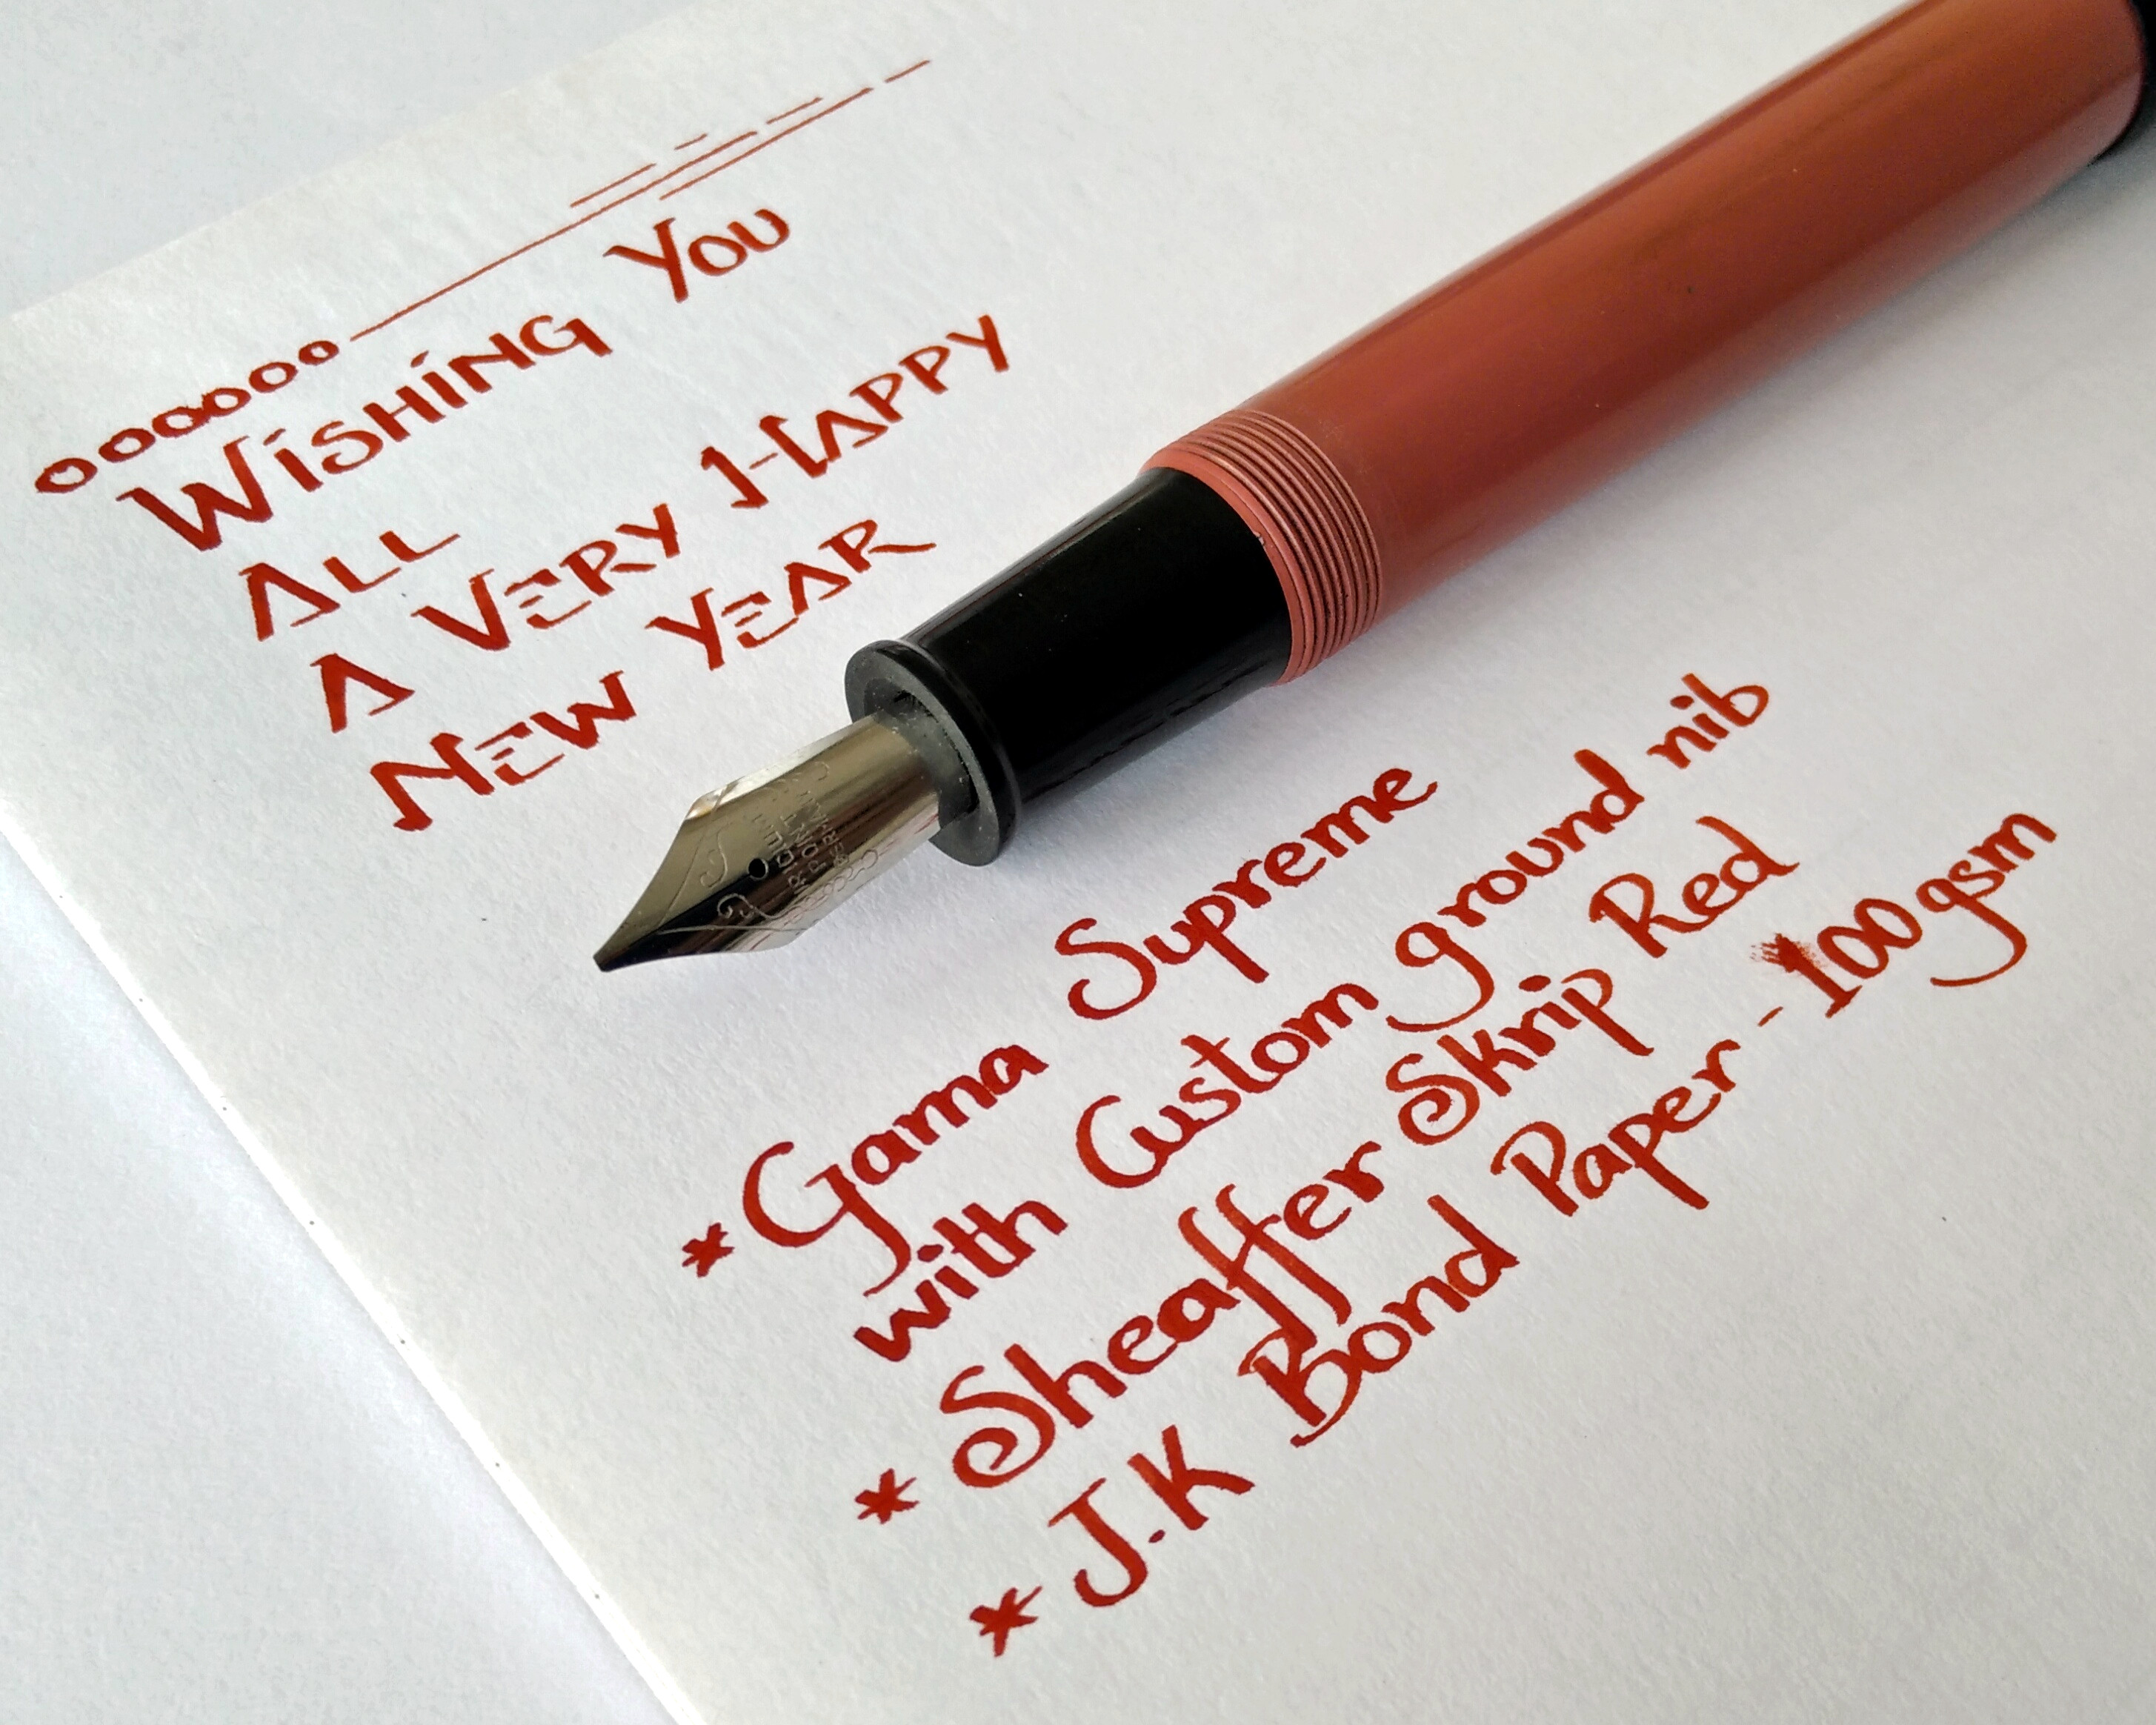 WiSHiNG YOU
ALL
A VERY HAPPY
NEW YEAR
* Gama Supreme
with Custom ground nib
* Sheaffer Skrip Red
* J.K Bond Paper - 100 gsm